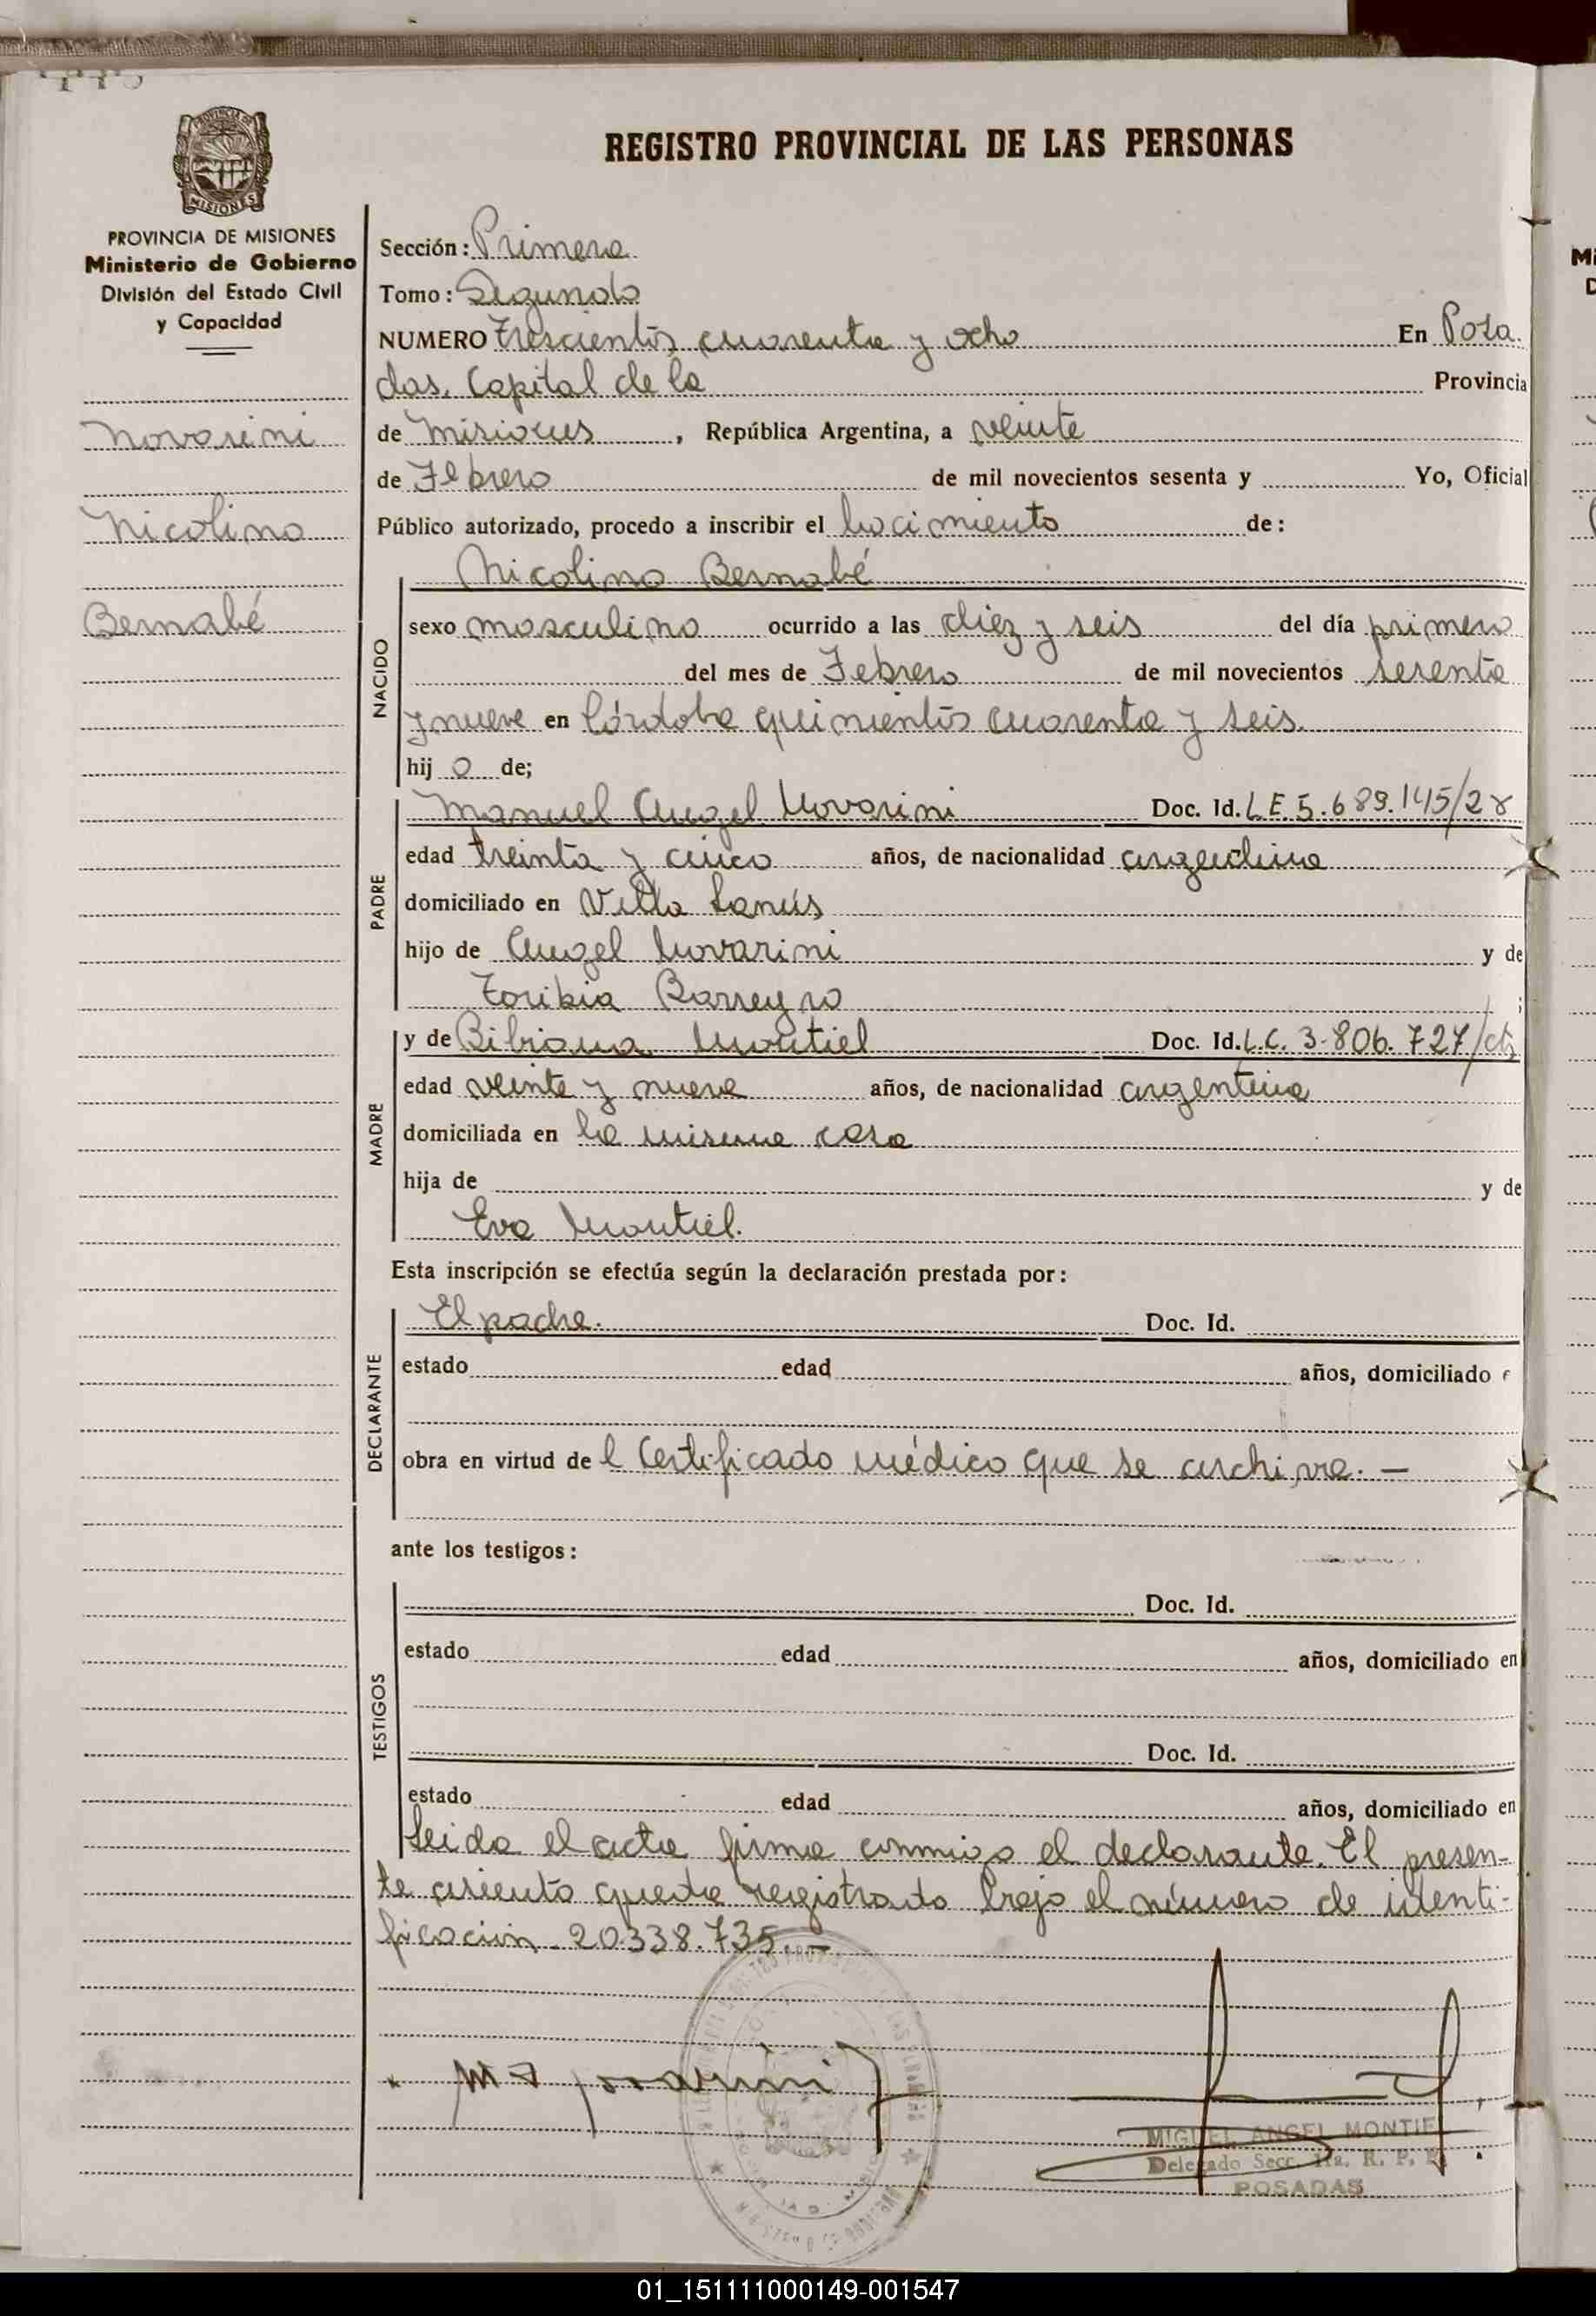 PROVINCIA DE MISIONES
Ministerio de Gobierno
División del Estado Civil
y Capacidad
Novarini
Nicolino
Bernabé
REGISTRO PROVINCIAL DE LAS PERSONAS
Sección: Primera
Tomo: Segundo
NUMERO Trescientos cuarenta y ocho En Posa
das. Capital de la Provincia
de Misiones, República Argentina, a veinte
de Febrero de mil novecientos sesenta y Yo, Oficial
Público autorizado, procedo a inscribir el nacimiento de:
NACIDO
Nicolino Bernabé
sexo masculino ocurrido a las diez y seis del día primero
del mes de Febrero de mil novecientos sesenta
y nueve en Córdoba quinientos cuarenta y seis.
hij o de;
PADRE
Manuel Angel Novarini Doc. Id. L.E. 5.689.145/28
edad treinta y cinco años, de nacionalidad argentina
domiciliado en Villa Lanús
hijo de Angel Novarini y de
Toribia Barreyro ;
MADRE
y de Bibiana Montiel Doc. Id. L.C. 3.806.727/cts
edad veinte y nueve años, de nacionalidad argentina
domiciliada en la misma casa
hija de y de
Eva Montiel.
Esta inscripción se efectúa según la declaración prestada por:
DECLARANTE
El padre. Doc. Id.
estado edad años, domiciliado e
obra en virtud de l Certificado médico que se archiva. —
ante los testigos:
TESTIGOS
Doc. Id.
estado edad años, domiciliado en
Doc. Id.
estado edad años, domiciliado en
Leida el acta firma conmigo el declarante. El presen-
te asiento queda registrado bajo el número de identi-
ficación 20.338.735. —
MIGUEL ANGEL MONTIEL
Delegado Secc. 1ra. R. P. P.
POSADAS
01_151111000149-001547